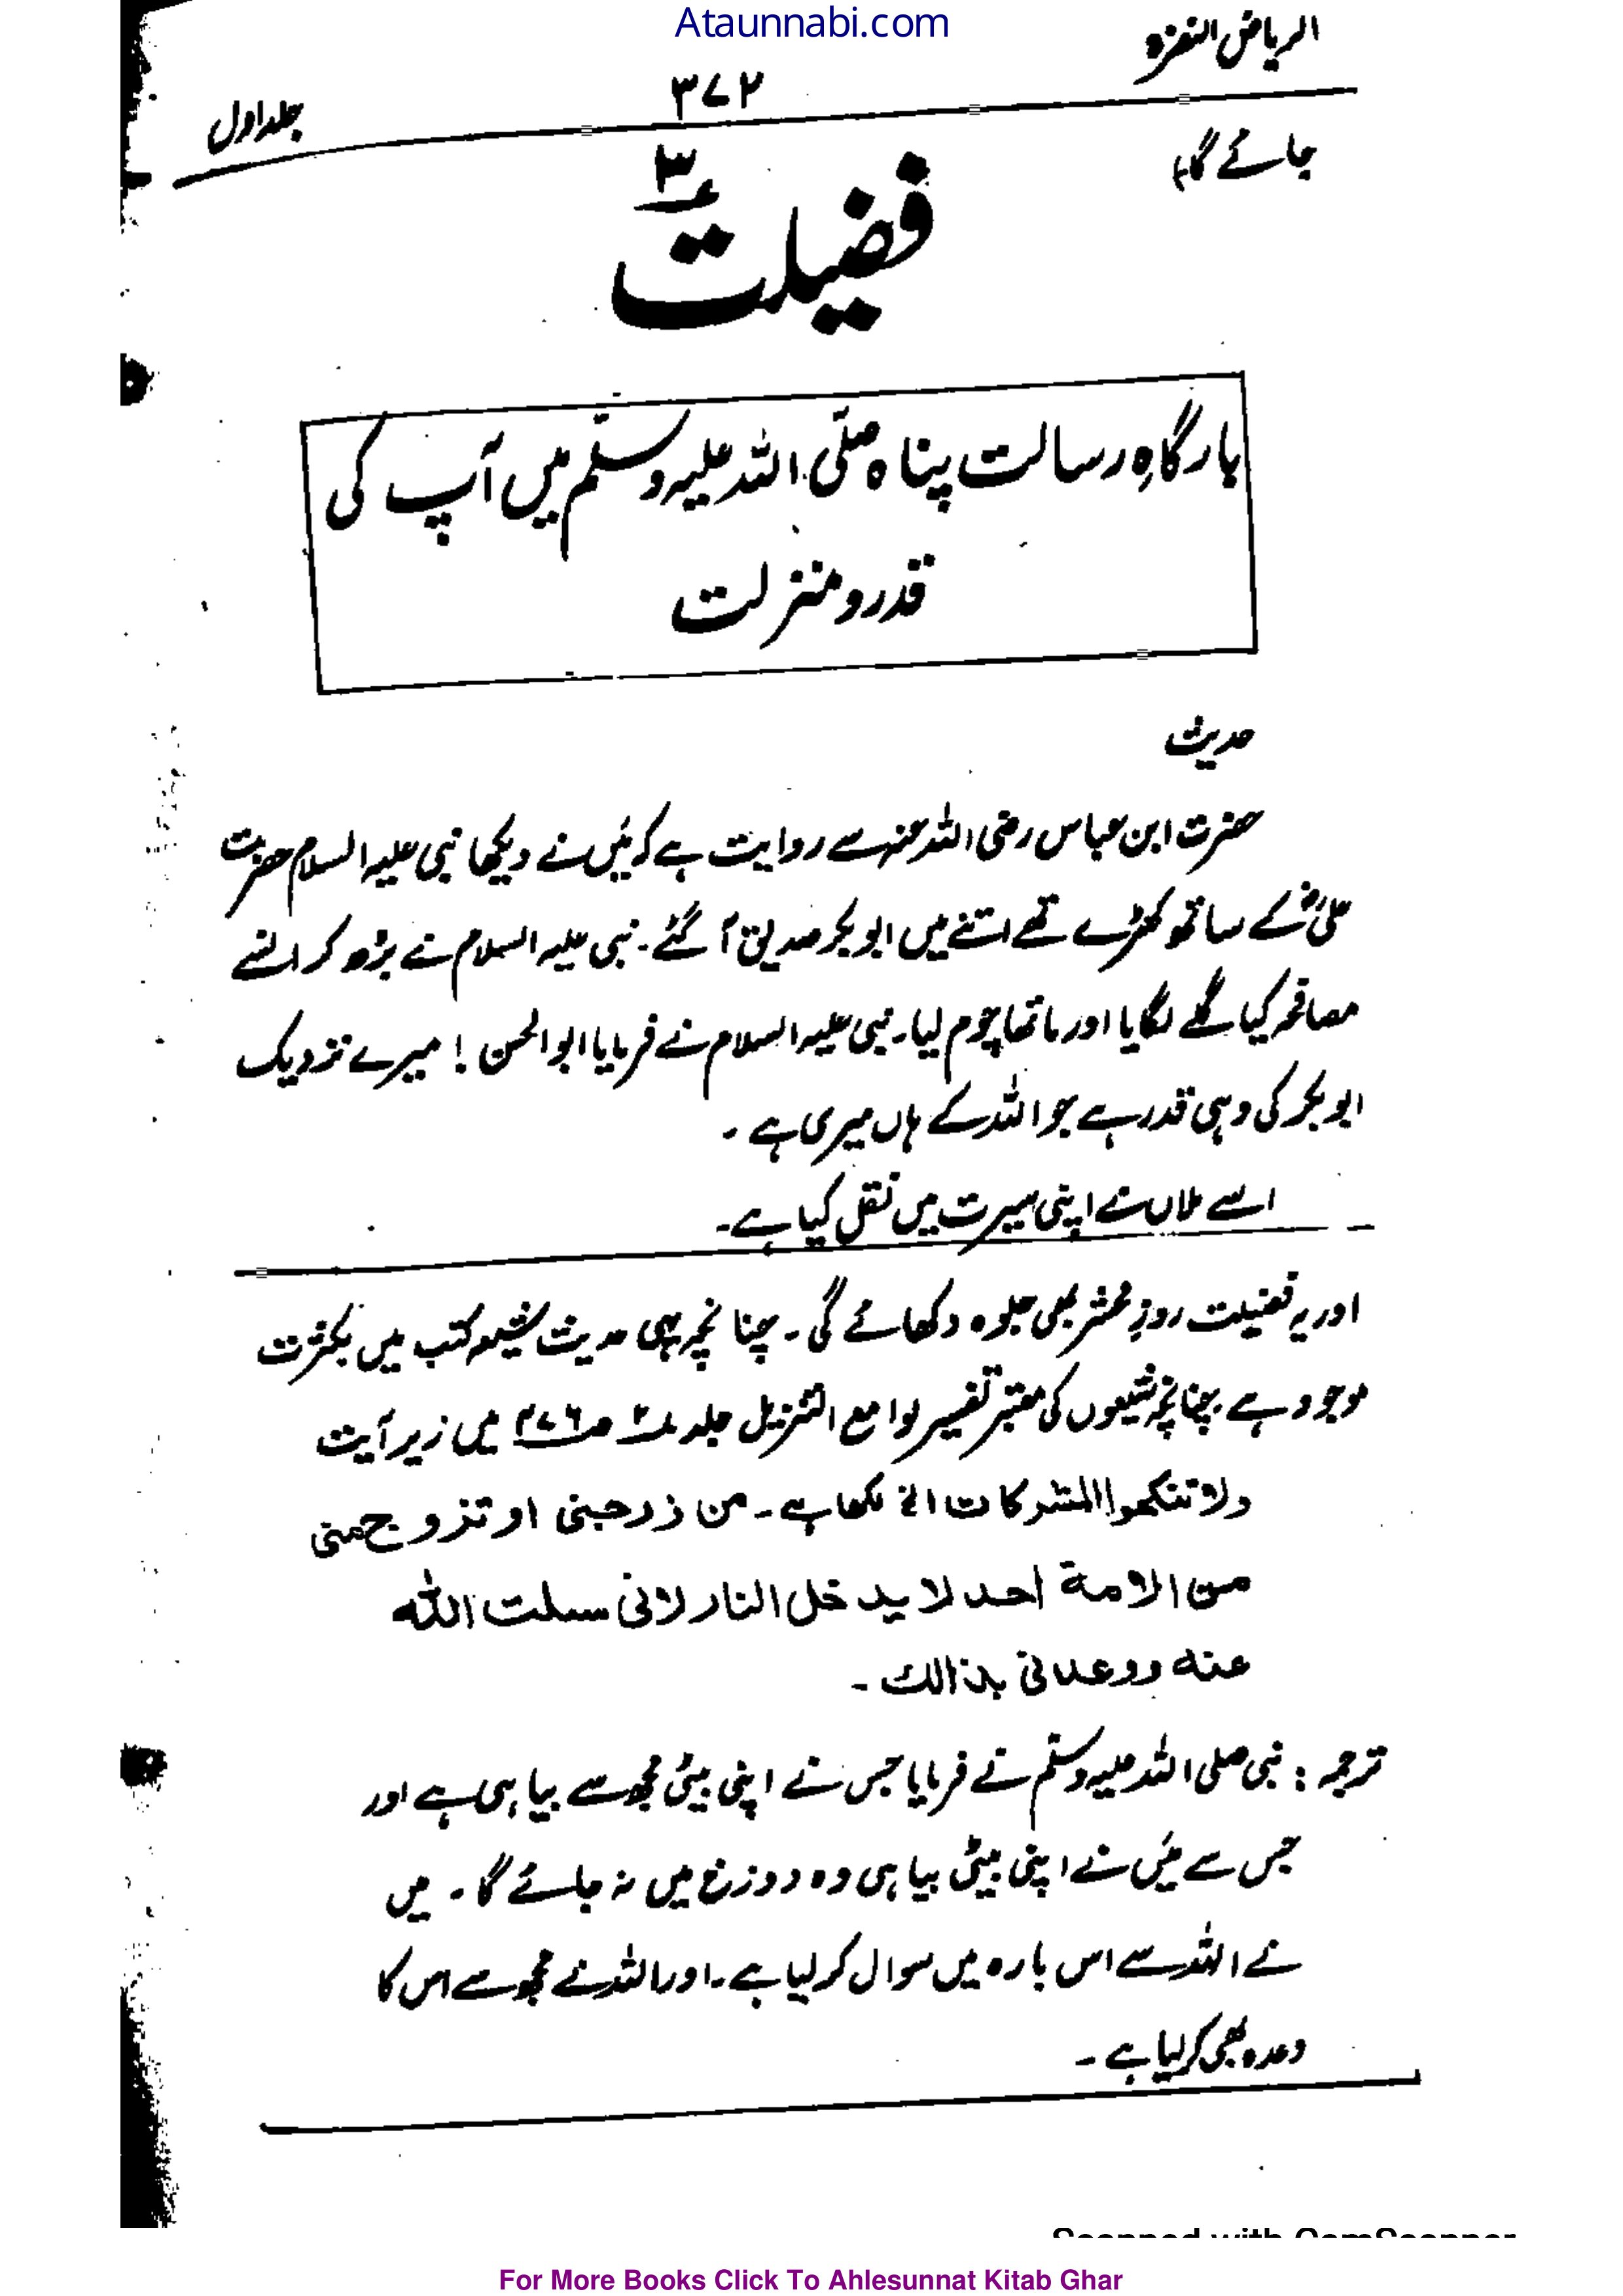 Ataunnabi.com
الریاض النضرہ
۳۷۲
جلد اول
جائے گا۔
فضیلت ۳
بارگاہِ رسالت پناہ صلّی اللہ علیہ وسلّم میں آپ کی
قدر و منزلت
حدیث
حضرت ابن عباس رضی اللہ عنہ سے روایت ہے کہ میَں نے دیکھا نبی علیہ السلام حضرت
علیؓ کے ساتھ کھڑے تھے اتنے میں ابوبکر صدیق آ گئے۔ نبی علیہ السلام نے بڑھ کر ان سے
مصافحہ کیا گلے لگایا اور ماتھا چوم لیا۔ نبی علیہ السلام نے فرمایا ابو الحسن! میرے نزدیک
ابو بکر کی وہی قدر ہے جو اللہ کے ہاں میری ہے ۔
اسے ملاں نے اپنی سیرت میں نقل کیا ہے۔
اور یہ فضیلت روزِ محشر بھی جلوہ دکھائے گی ۔ چنانچہ یہی حدیث شیعہ کتب میں بکثرت
موجود ہے چنانچہ شیعوں کی معتبر تفسیر لوامع التنزیل جلد ۲ ص ۴۷۶ میں زیر آیت
ولا تنکحوا المشرکات الخ لکھا ہے ۔ من زوجنی او تزوج منی
من الامة احد لا یدخل النار لانی سئلت الله
عنه ووعدنی بذالك ۔
ترجمہ : نبی صلی اللہ علیہ وسلّم نے فرمایا جس نے اپنی بیٹی مجھ سے بیاہی ہے اور
جس سے میَں نے اپنی بیٹی بیاہی وہ دوزخ میں نہ جائے گا ۔ میں
نے اللہ سے اس بارہ میں سوال کر لیا ہے ۔ اور اللہ نے مجھ سے اس کا
وعدہ بھی کر لیا ہے ۔
Scanned with CamScanner
For More Books Click To Ahlesunnat Kitab Ghar